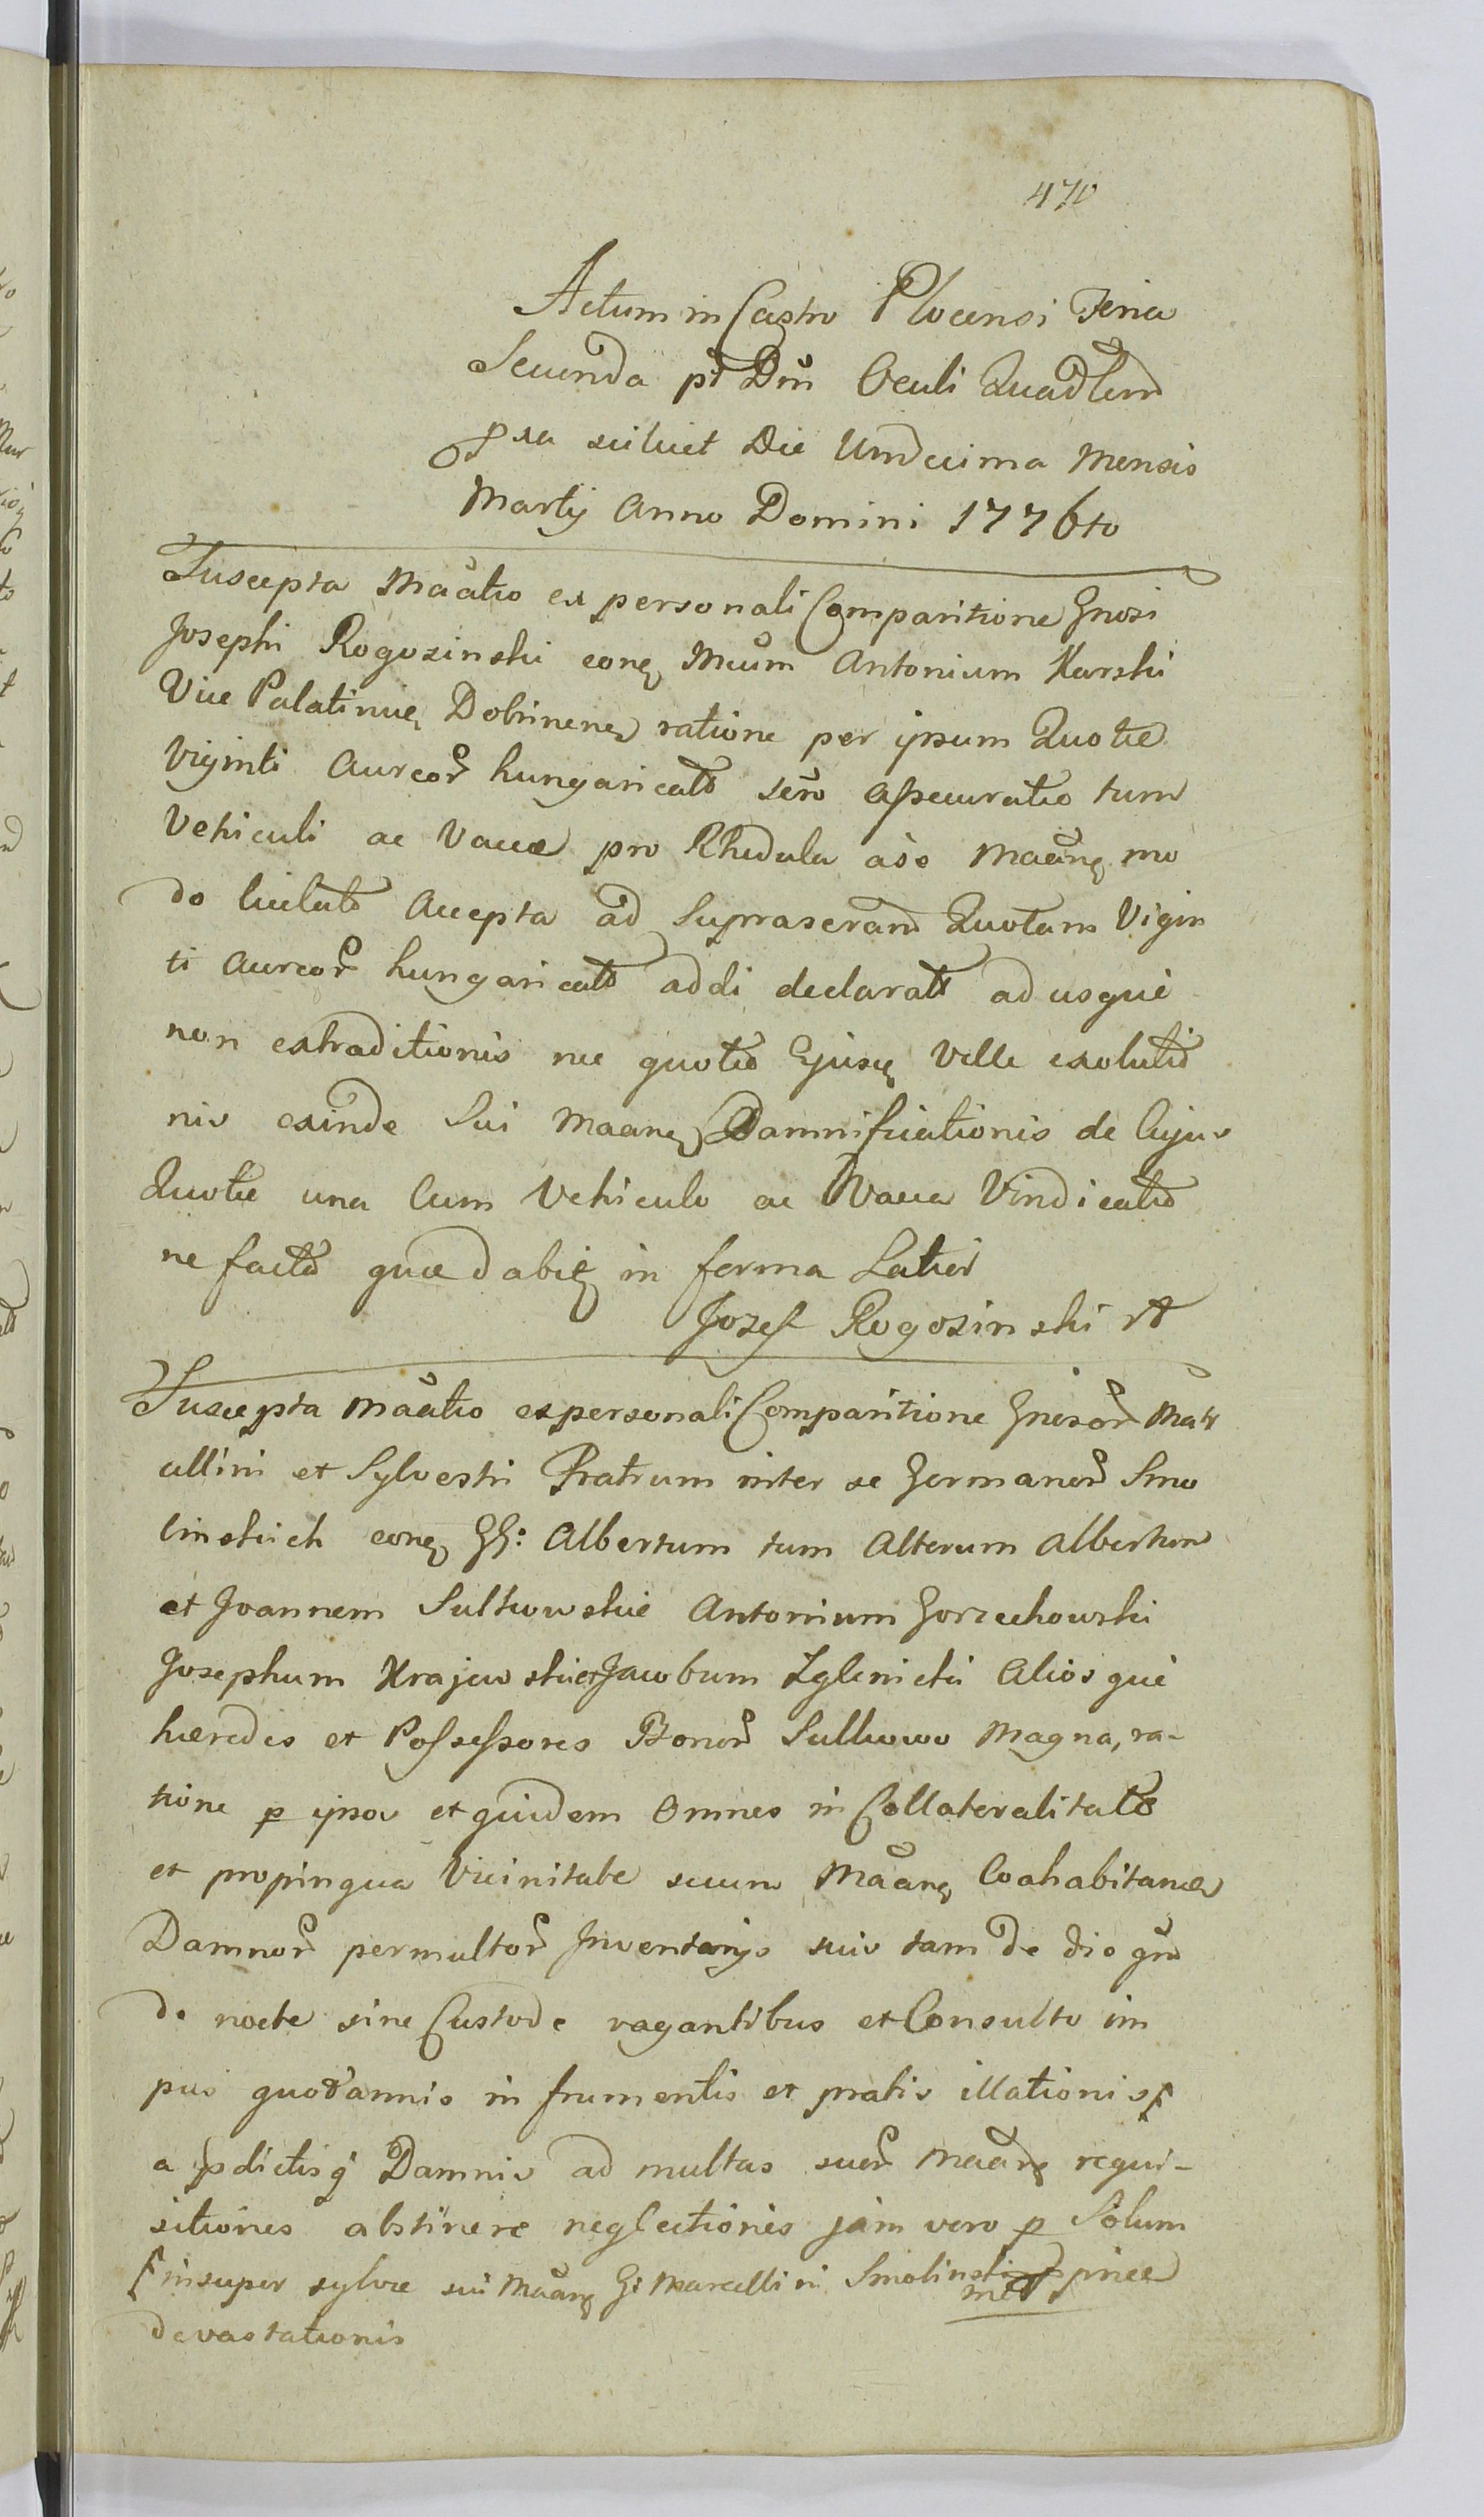 470
Actum in Castro Plocensi Feria
Secunda pt Dm̃ Oculi Quadlem
pxa scilicet Die Undecima Mensis
Martij Anno Domini 1776to
Suscepta Mãatio ex personali Comparitione Gnosi
Josephi Rogozinski conq Mcum Antonium Karski
Vice Palatinum Dobrinen ratione per ipsum Quotæ
Viginti Aureor hungaricalt Assecuratæ tum
Vehiculi ac Vaccæ pro Rhedula Maang mo
do licitato Accepta ad Supraseram Quotam Vigin
ti Aureor hungaricalt addi declarat ad usque
non extraditionis nec quotæ Ejusq Velle exolutio
nis exinde Sui Maang Damnificationis de Cujus
Quotæ una Cum Vehiculo ac Vacca Vindicatio
ne facta quæ dabit in forma Latiori
Jozef Rogozinski
Suscepta Mãatio ex personali Comparitione Gnosor Mar
cellini et Sylvestri Fratrum inter se Germanor Smo
linskich conq GG: Albertum tum Alterum Albertum
et Joannem Sulkowskie Antonium Gorzechowski
Josephum Krajewski et Jacobum Zglenicki Aliosque
hæredes et Possessores Bonor Sulkowo Magna, ra-
tione p ipsos et quidem Omnes in Collateralitate
et propinqua Vicinitate secum Maang Coahabitances
Damnor permultor Inventarijs suis tam de die qm
de nocte sine Custode vagantibus et Consulto im
pus quotannis in frumentis et pratis illationis
a pdictisq Damnis ad multas suor Maang requi-
sitiones abstinere neglectionis jam vero p Solum
insuper sylvæ sui Maang G: Marcellini Smolinski pineæ
devastationis